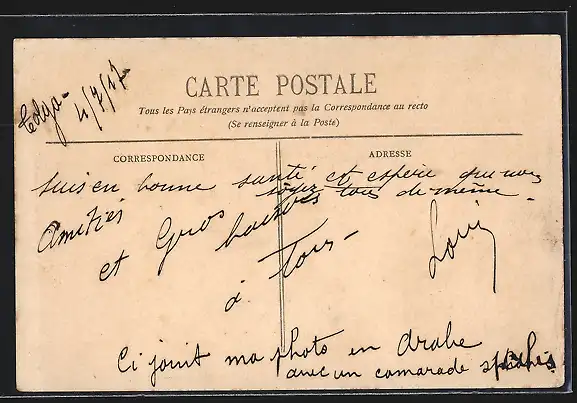 Tolga-
4/7/17
CARTE POSTALE
Tous les Pays étrangers n'acceptent pas la Correspondance au recto
(Se renseigner à la Poste)
CORRESPONDANCE
ADRESSE
suis en bonne santé et espère que vous
soyez tous de même -
Amitiés
et Gros baisers
à Tous -
Louis
Ci joint ma photo en Arabe
avec un camarade spahis.